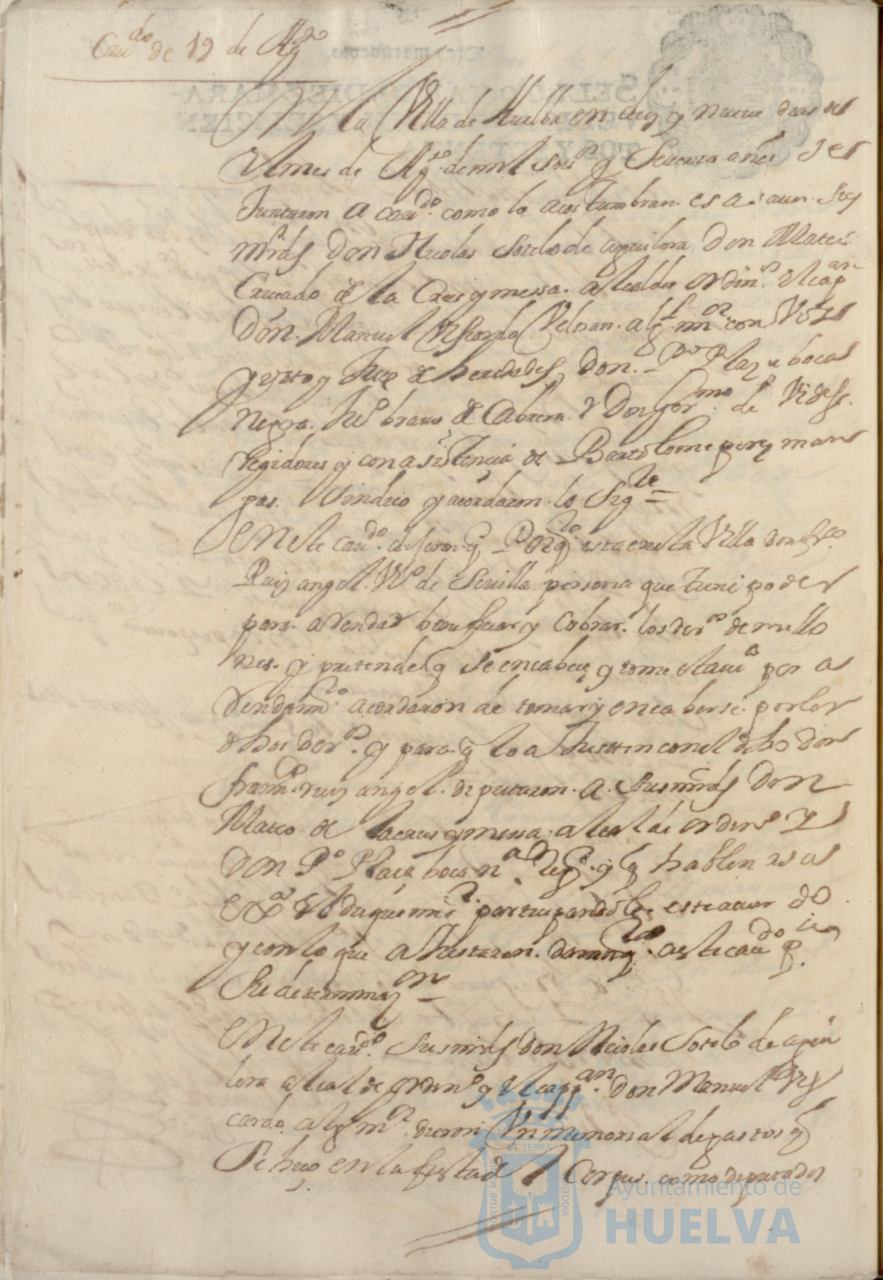 Cau^do de 19 de Ag^to
En la Villa de Huelba en diez y nueve dias del
el mes de Ag^to de mill seis^s y Setenta años Se
Juntaron a cau^do como lo acostumbran es a sauer Sus
m^rds Don Nicolas Sotelo de aguilera Don Mateo
Cruzado de la Cruz y messa alcaldes ordin^s el cap^an
Don Manuel Viscardo Veltran alg^l m^or con Voz
y voto y Juez de heredades don P^o Plaza bocas
negra Fr^o brauo de Cabrera y Don Ger^mo de
Regidores y con asistencia de Bartolome perez
Sindico y acordaron lo Sig^te =
En este cau^do dijeron q Por q^do esta en esta Villa don fr^co
Ruiz angel V^o de Sevilla persona que tiene poder
para arendar beneficiar y Cobrar los der^os de millo
nes y pretende q Se encabece y tome esta Vi^a por a
Rendam^to acordaron de tomar y encabesar por los
dhos der^os y para q lo ajusten con el dho don
fran^co ruiz angel diputaron a Sus m^rds Don
Mateo de la cruz y messa alcalde orden^o y
Don P^o Plaça boca n^a Reg^or y q hablen a su
ex^a el duque mi S^r participandole este acuerdo
y con lo que ajustaren den q^ta a este cau^do p^a
Su determinaz^on
En este cau^do Sus m^rds don Nicolas Sotelo de agui
lera alcalde ordin^o y el capp^an don Manuel Vis
cardo alg^l m^or dieron Un memorial de gastos q
Se hizo en la fiesta del Corpus como diputados
Ayuntamiento de
HUELVA